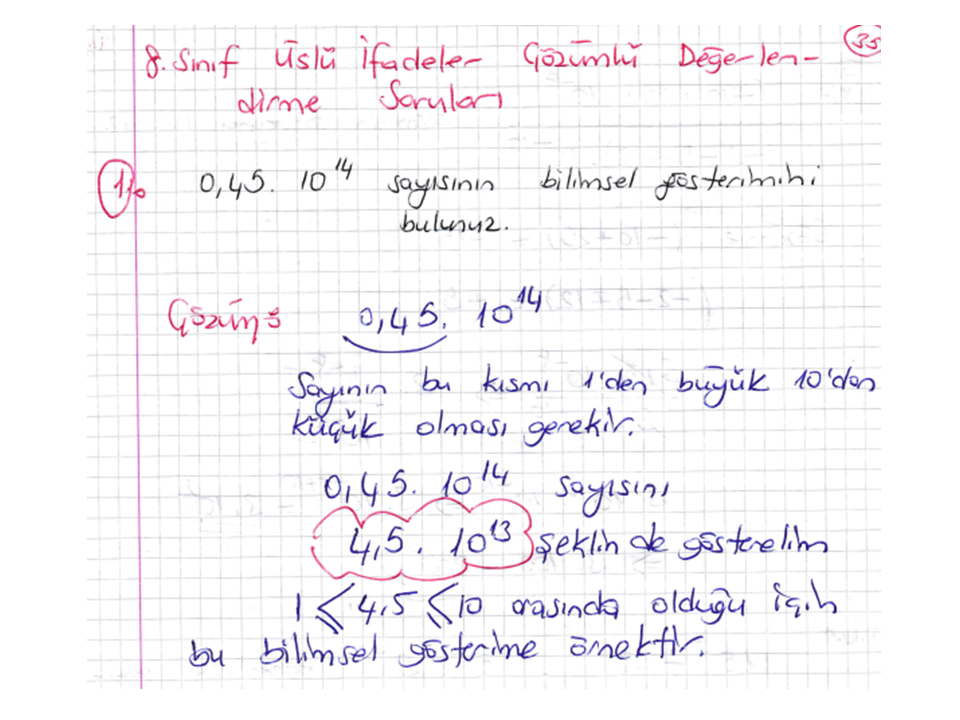 35
8. Sınıf Üslü İfadeler Çözümlü Değerlen-
dirme Soruları
1) 0,45. 10¹⁴ sayısının bilimsel gösterimini
bulunuz.
Çözüm: 0,45. 10¹⁴
Sayının bu kısmı 1'den büyük 10'dan
küçük olması gerekir.
0,45. 10¹⁴ sayısını
4,5. 10¹³ şeklinde gösterelim
1 ⩽ 4,5 ⩽ 10 arasında olduğu için
bu bilimsel gösterime örnektir.